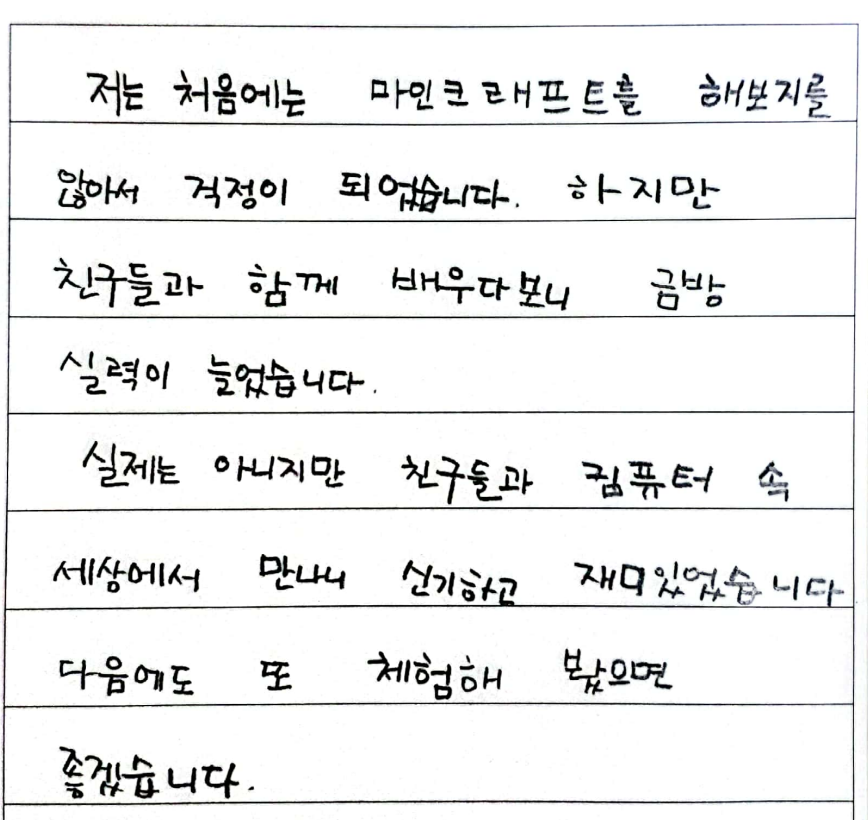 저는 처음에는 마인크래프트를 해보지를
않아서 걱정이 되었습니다. 하지만
친구들과 함께 배우다보니 금방
실력이 늘었습니다.
실제는 아니지만 친구들과 컴퓨터 속
세상에서 만나니 신기하고 재미있었습니다
다음에도 또 체험해 봤으면
좋겠습니다.